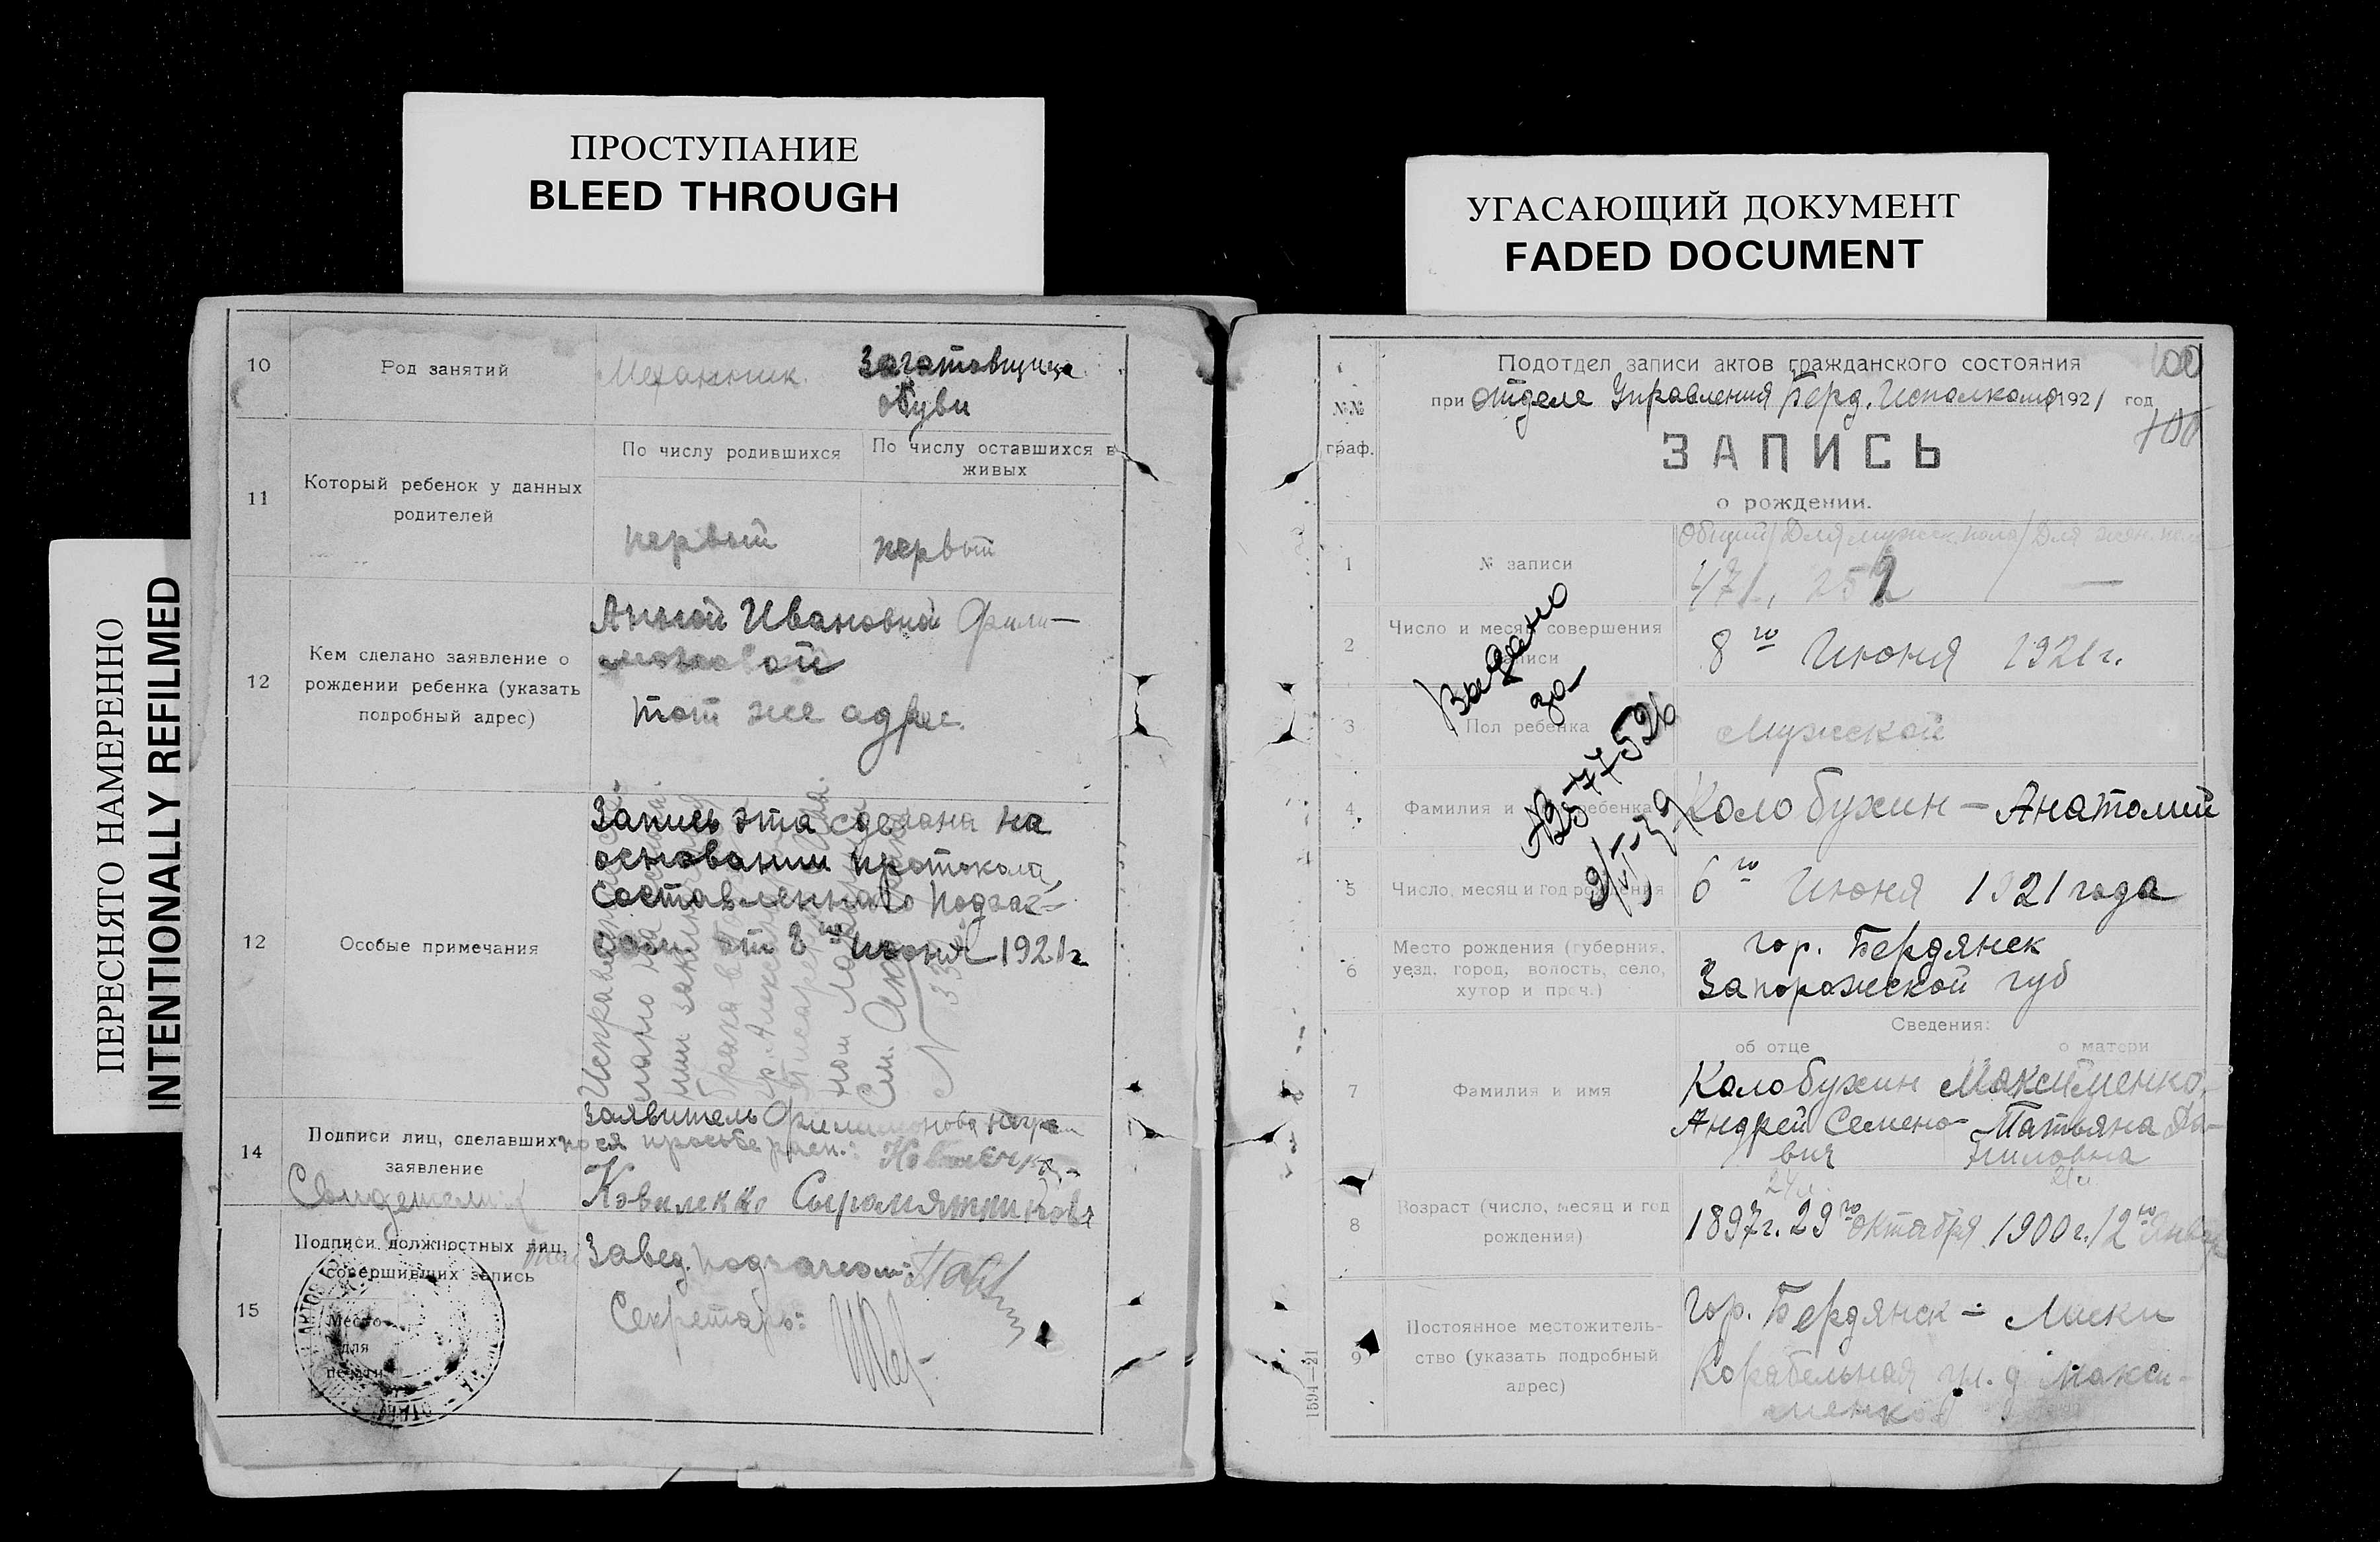 ПРОСТУПАНИЕ
BLEED THROUGH
УГАСАЮЩИЙ ДОКУМЕНТ
FADED DOCUMENT
ПЕРЕСНЯТО НАМЕРЕННО
INTENTIONALLY REFILMED
10
Род занятий
Механик
Заготовщица
обуви
11
Который ребенок у данных
родителей
По числу родившихся
По числу оставшихся в
живых
первый
первый
12
Кем сделано заявление о
рождении ребенка (указать
подробный адрес)
Анной Ивановной Фили-
моновой
тот же адрес.
12
Особые примечания
Запись эта сделана на
основании протокола,
составленного подзаг-
сом от 8го июня 1921г
14
Подписи лиц, сделавших
заявление
Свидетели:
Заявитель Филимонова негр.
по ея просьбе расп.:
Коваленко Сыромятникова
15
Подписи должностных лиц,
совершивших запись
Место
для
печати
Завед. подзагсом:
Секретарь:
№№
граф.
Подотдел записи актов гражданского состояния
100
при отделе Управления Берд. Исполкома 1921 год
100
ЗАПИСЬ
о рождении.
1
№ записи
Общий / Для мужск. пола / Для жен. пола
471, 252 —
2
Число и месяц совершения
записи
8го Июня 1921г.
3
Пол ребенка
Мужской
4
Фамилия и ребенка
Колобухин - Анатолий
5
Число, месяц и год рождения
6го Июня 1921 года
6
Место рождения (губерния,
уезд, город, волость, село,
хутор и проч.)
гор. Бердянск
Запорожской губ
Выдано
Сведения:
об отце
о матери
7
Фамилия и имя
Колобухин Максименко,
Андрей Семено- Татьяна Да-
вич ниловна
8
Возраст (число, месяц и год
рождения)
1897г. 29го октября 1900г. 12го Января
9
Постоянное местожитель-
ство (указать подробный
адрес)
гор. Бердянск - Лиски
Корабельная ул. д Макси-
менко
1591—21